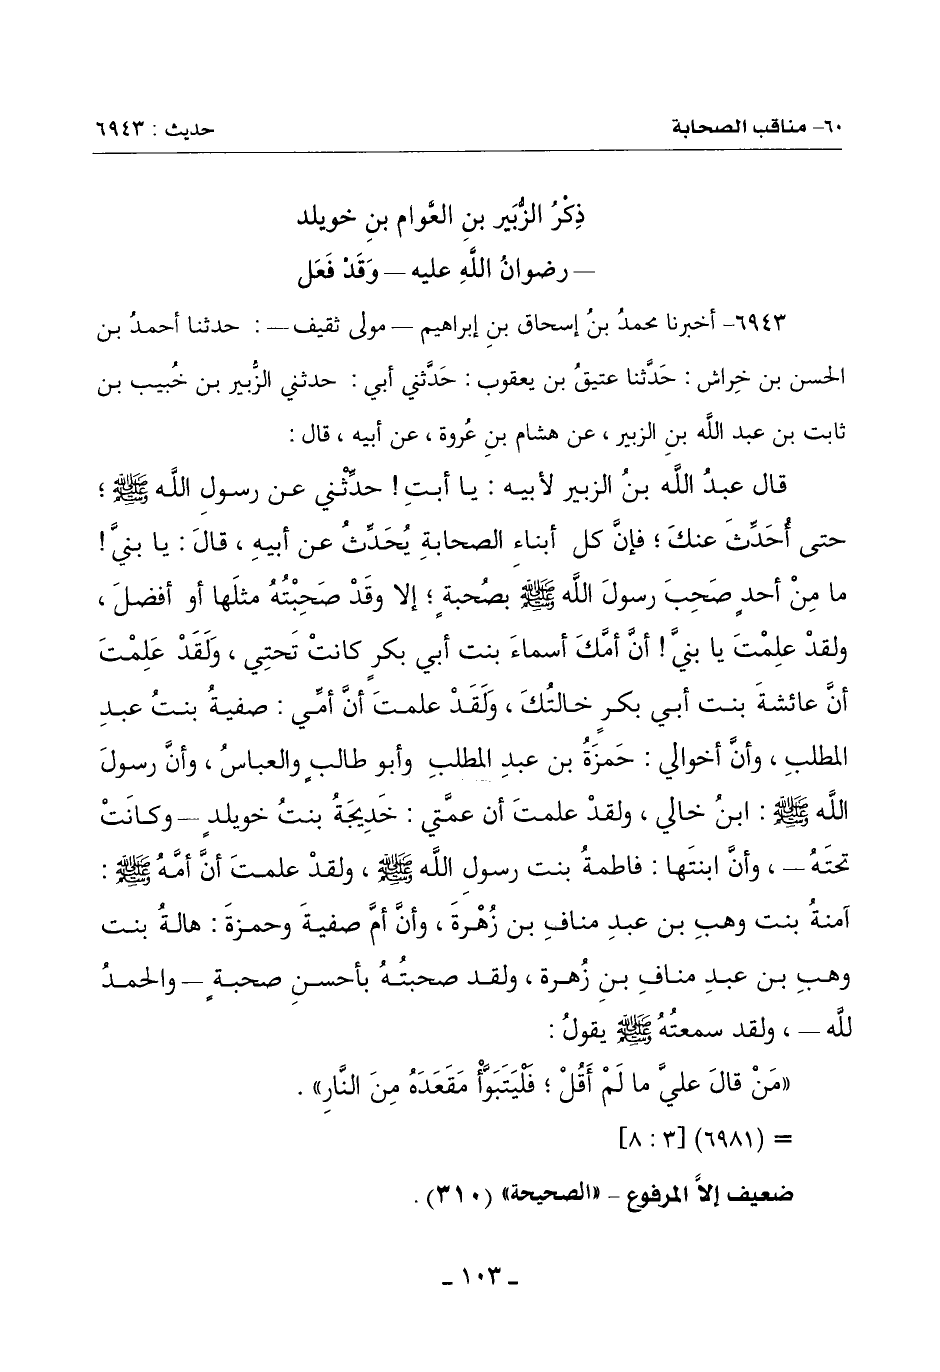 ٦٠- مناقب الصحابة حديث : ٦٩٤٣
ذِكْرُ الزُّبَير بنِ العَّوام بنِ خويلد
– رضوانُ اللَّهِ عليه – وَقَدْ فَعَل
٦٩٤٣- أخبرنا محمدُ بنُ إسحاق بنِ إبراهيم – مولى ثقيف – : حدثنا أحمدُ بن
الحسن بن خِراش : حَدَّثنا عتيقُ بن يعقوب : حَدَّثني أبي : حدثني الزُّبير بن خُبيب بن
ثابت بن عبد اللَّه بنِ الزبير ، عن هشام بنِ عُروة ، عن أبيه ، قال :
قال عبدُ اللَّه بنُ الزبير لأبيه : يا أبتِ ! حدِّثْني عن رسولِ اللَّه ﷺ ؛
حتى أُحَدِّثَ عنكَ ؛ فإنَّ كل أبناء الصحابةِ يُحَدِّثُ عن أبيهِ ، قالَ : يا بنيَّ !
ما مِنْ أحدٍ صَحِبَ رسولَ اللَّه ﷺ بصُحبةٍ ؛ إلا وقَدْ صَحِبْتُهُ مثلَها أو أفضلَ ،
ولقدْ علِمْتَ يا بنيَّ ! أنَّ أمَّكَ أسماءَ بنت أبي بكرٍ كانتْ تَحتِي ، ولَقَدْ عَلِمْتَ
أنَّ عائشةَ بنت أبي بكرٍ خالتُكَ ، ولَقَدْ علمتَ أنَّ أمِّي : صفيةُ بنتُ عبدِ
المطلبِ ، وأنَّ أخوالي : حَمزَةُ بن عبدِ المطلبِ وأبو طالبٍ والعباسُ ، وأنَّ رسولَ
اللَّه ﷺ : ابنُ خالي ، ولقدْ علمتَ أن عمَّتي : خَدِيجَةُ بنتُ خويلدٍ – وكانَتْ
تحتَهُ – ، وأنَّ ابنتَها : فاطمةُ بنت رسولِ اللَّه ﷺ ، ولقدْ علمتَ أنَّ أمَّهُ ﷺ :
آمنةُ بنت وهبِ بن عبدِ منافِ بن زُهْرةَ ، وأنَّ أمَّ صفيةَ وحمزةَ : هالةُ بنت
وهبِ بن عبدِ منافِ بنِ زُهرة ، ولقد صحبتُهُ بأحسنِ صحبةٍ – والحمدُ
للَّه – ، ولقد سمعتُهُ ﷺ يقولُ :
«مَنْ قالَ عليَّ ما لَمْ أَقُلْ ؛ فَلْيَتَبَوَّأْ مَقْعَدَهُ مِنَ النَّارِ» .
= (٦٩٨١) [٣ : ٨]
ضعيف إلاَّ المرفوع - «الصحيحة» (٣١٠) .
ـ ١٠٣ ـ